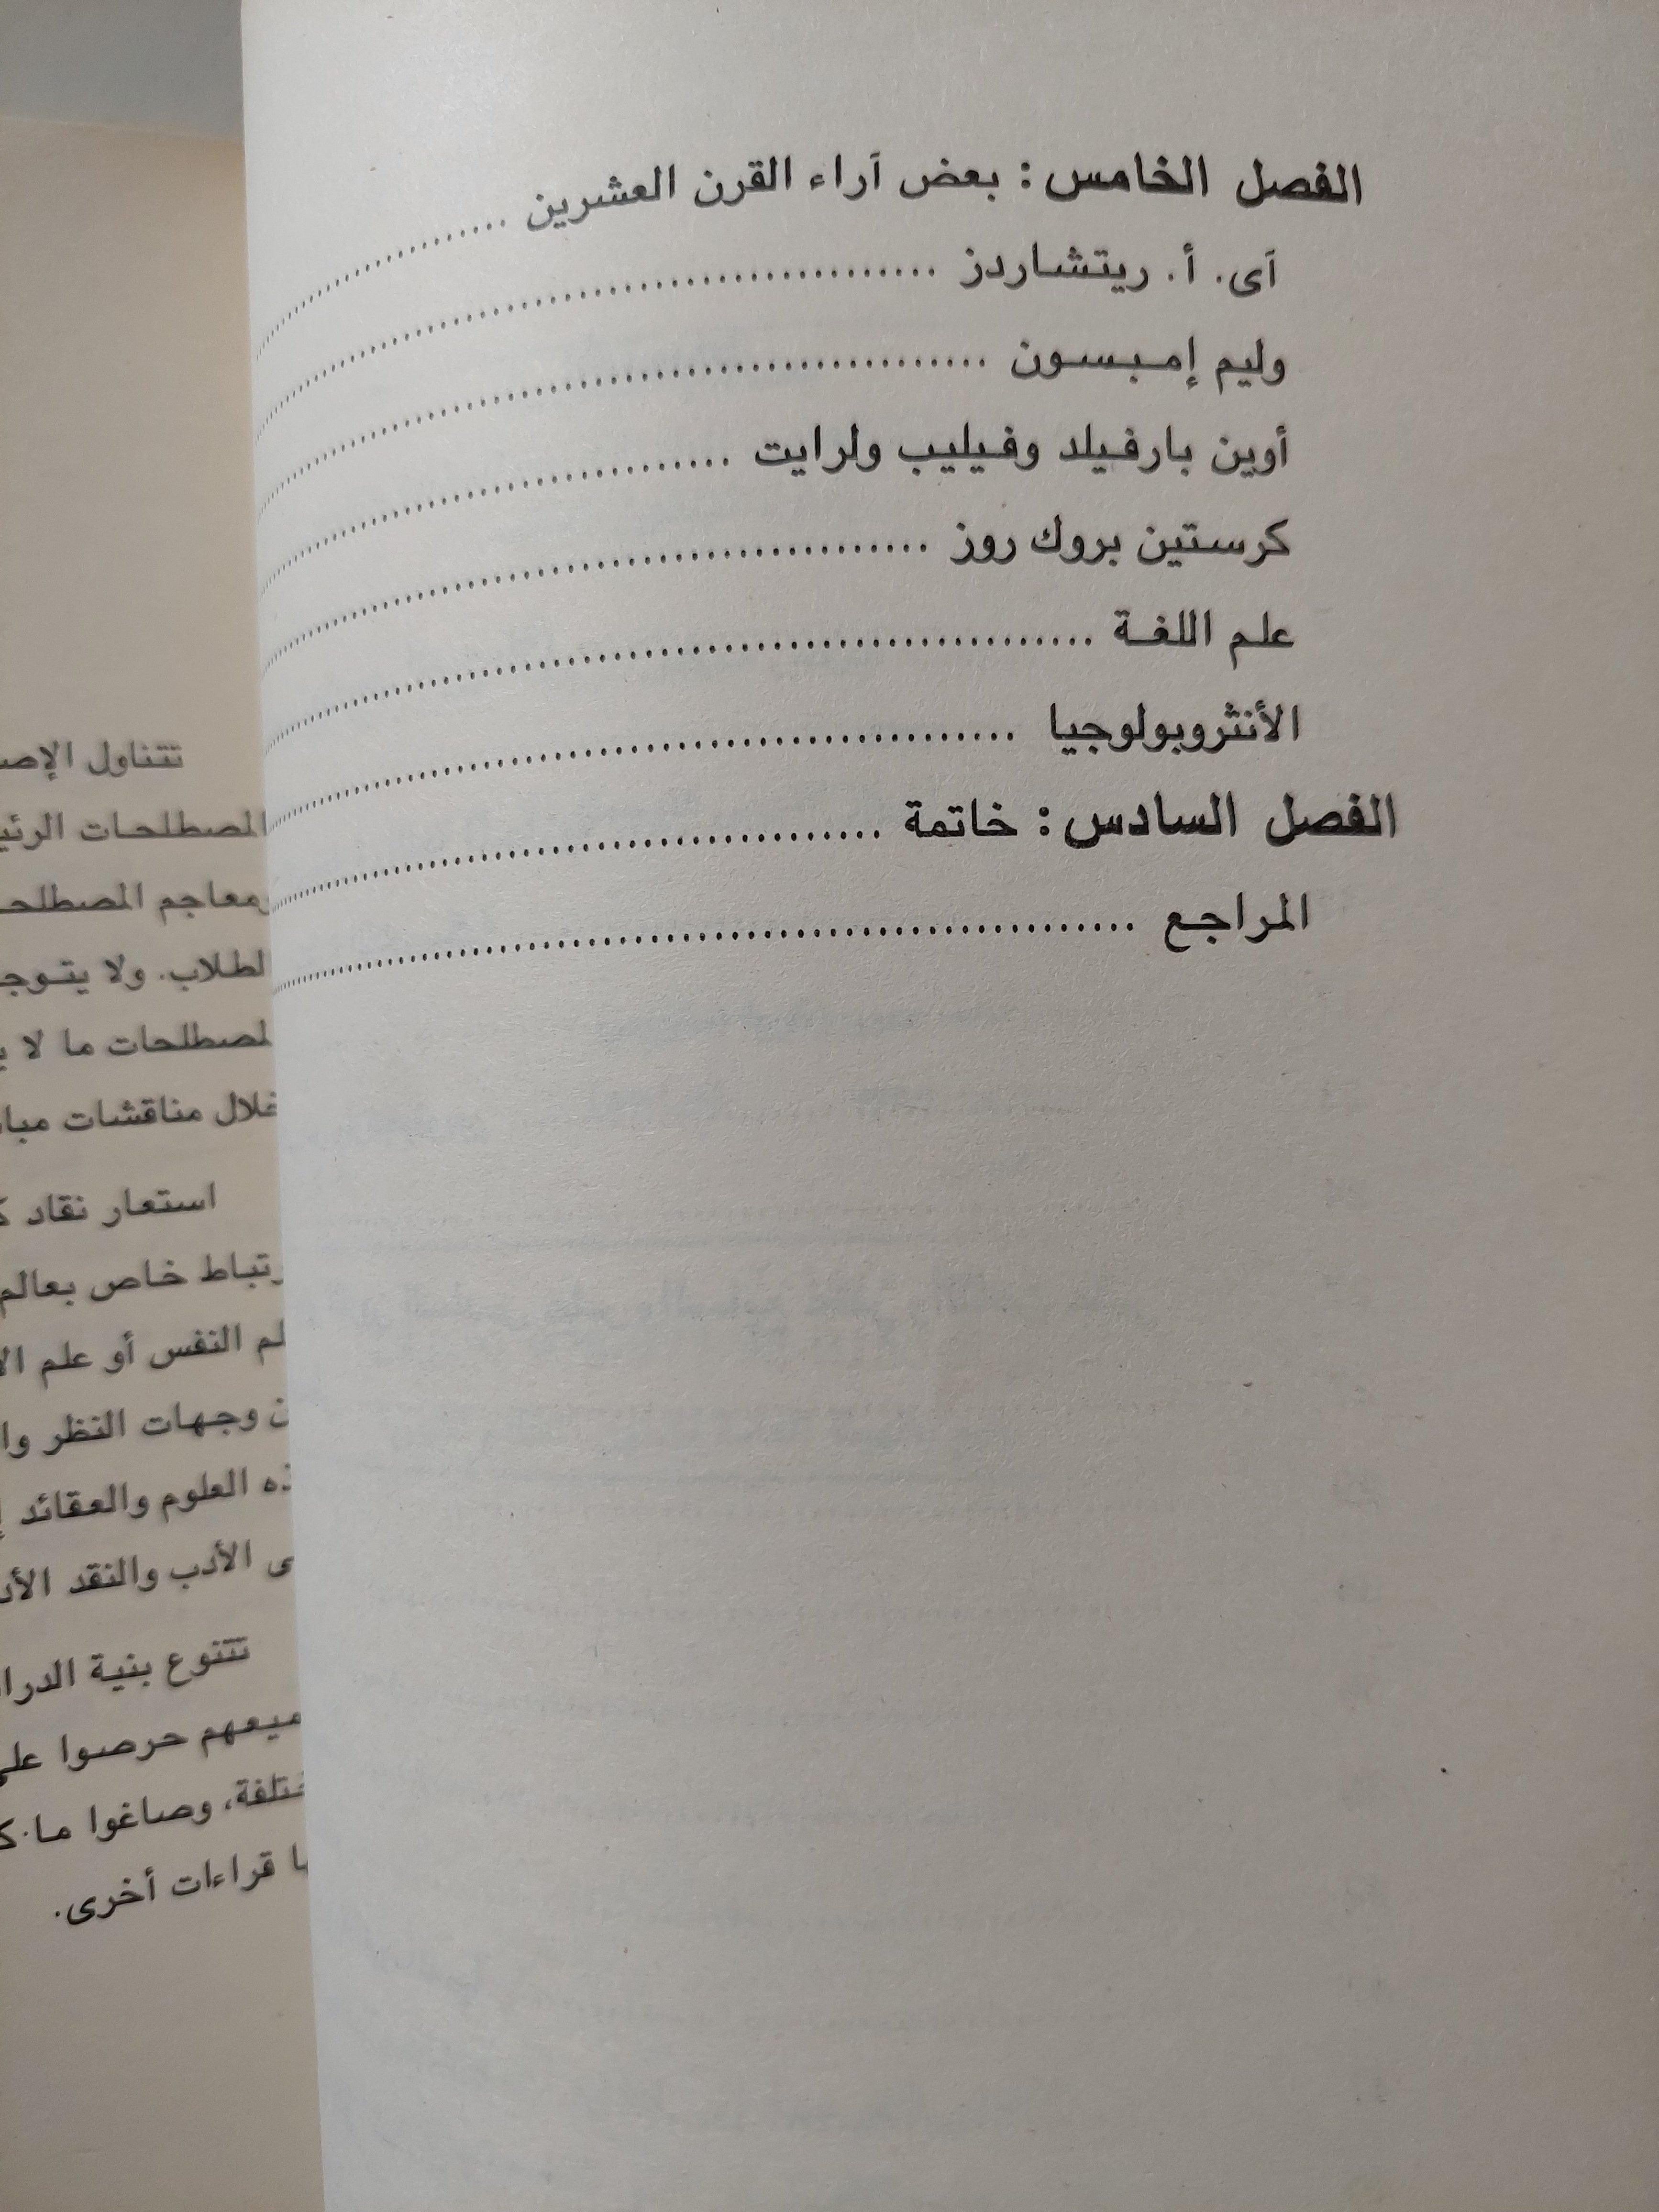 الفصل الخامس: بعض آراء القرن العشرين ..........
آى. أ. ريتشاردز ..........
وليم إمبسون ..........
أوين بارفيلد وفيليب ولرايت ..........
كرستين بروك روز ..........
علم اللغة ..........
الأنثروبولوجيا ..........
الفصل السادس: خاتمة ..........
المراجع ..........
تتناول
المصطلحات
ومعاجم
الطلاب. ولا
المصطلحات ما لا
خلال مناقشات
استعار نقاد
خاص بعالم
النفس أو علم
وجهات النظر
العلوم والعقائد
الأدب والنقد
تتنوع بنية
حرصوا
وصاغوا
قراءات أخرى.